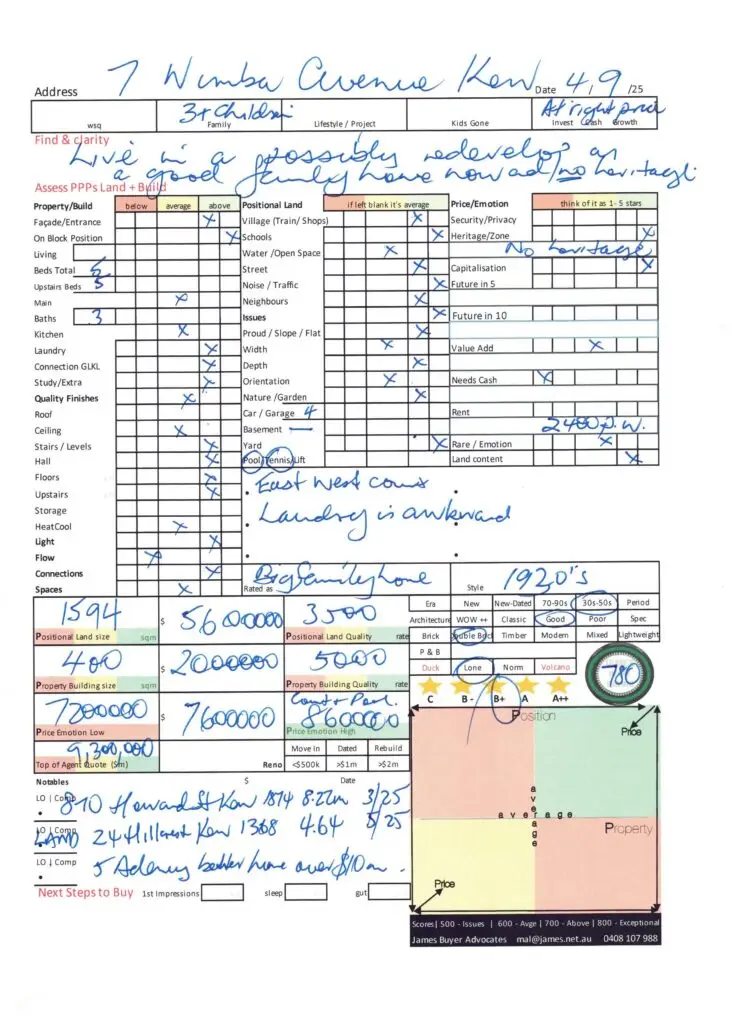 Address 7 Wimba Avenue Kew Date 4/9/25
3+ Children At right price
wsq Family Lifestyle / Project Kids Gone Invest Cash Growth
Find & clarity
Live in a possibly redevelop as
a good family home now ad/no heritage.
Assess PPPs Land + Build
Property/Build below average above Positional Land if left blank it's average Price/Emotion think of it as 1- 5 stars
Façade/Entrance X Village (Train/ Shops) X Security/Privacy
On Block Position X Schools X Heritage/Zone X
Living Water /Open Space X No heritage
Beds Total 5 Street X Capitalisation X
Upstairs Beds 5 Noise / Traffic X Future in 5
Main X Neighbours X
Baths 3 Issues X Future in 10
Kitchen X Proud / Slope / Flat X
Laundry X Width X Value Add X
Connection GLKL X Depth X
Study/Extra X Orientation X Needs Cash X
Quality Finishes X Nature /Garden X
Roof Car / Garage 4 Rent
Ceiling X Basement — 2400 p.w.
Stairs / Levels X Yard X Rare / Emotion X
Hall X Pool/Tennis/Lift Land content X
Floors X East West court
Upstairs X
Storage Laundry is awkward
HeatCool X
Light X
Flow X
Connections X
Spaces X Rated as Big family home Style 1920's
1594 $ 5600000 3500
Positional Land size sqm Positional Land Quality rate
400 $ 2000000 5000
Property Building size sqm Property Building Quality rate
7200000 $ 7600000 Court + Pool 8600000
Price Emotion Low Price Emotion High
9,300,000
Top of Agent Quote ($m) Reno
Move in Dated Rebuild
<$500k >$1m >$2m
Era New New-Dated 70-90s 30s-50s Period
Architecture WOW ++ Classic Good Poor Spec
Brick Double Brick Timber Modern Mixed Lightweight
P & B
Duck Lone Norm Volcano
780
C B - B+ A A++
Position
Price
average
average
Property
Price
Notables $ Date
LO | Comp 8-10 Howard St Kew 1874 8.22m 3/25
LO | Comp LAND 24 Hillcrest Kew 1368 4.64 5/25
LO ↓ Comp 5 Adeney better home over $10m.
Next Steps to Buy 1st Impressions sleep gut
Scores| 500 - Issues | 600 - Avge | 700 - Above | 800 - Exceptional
James Buyer Advocates mal@james.net.au 0408 107 988